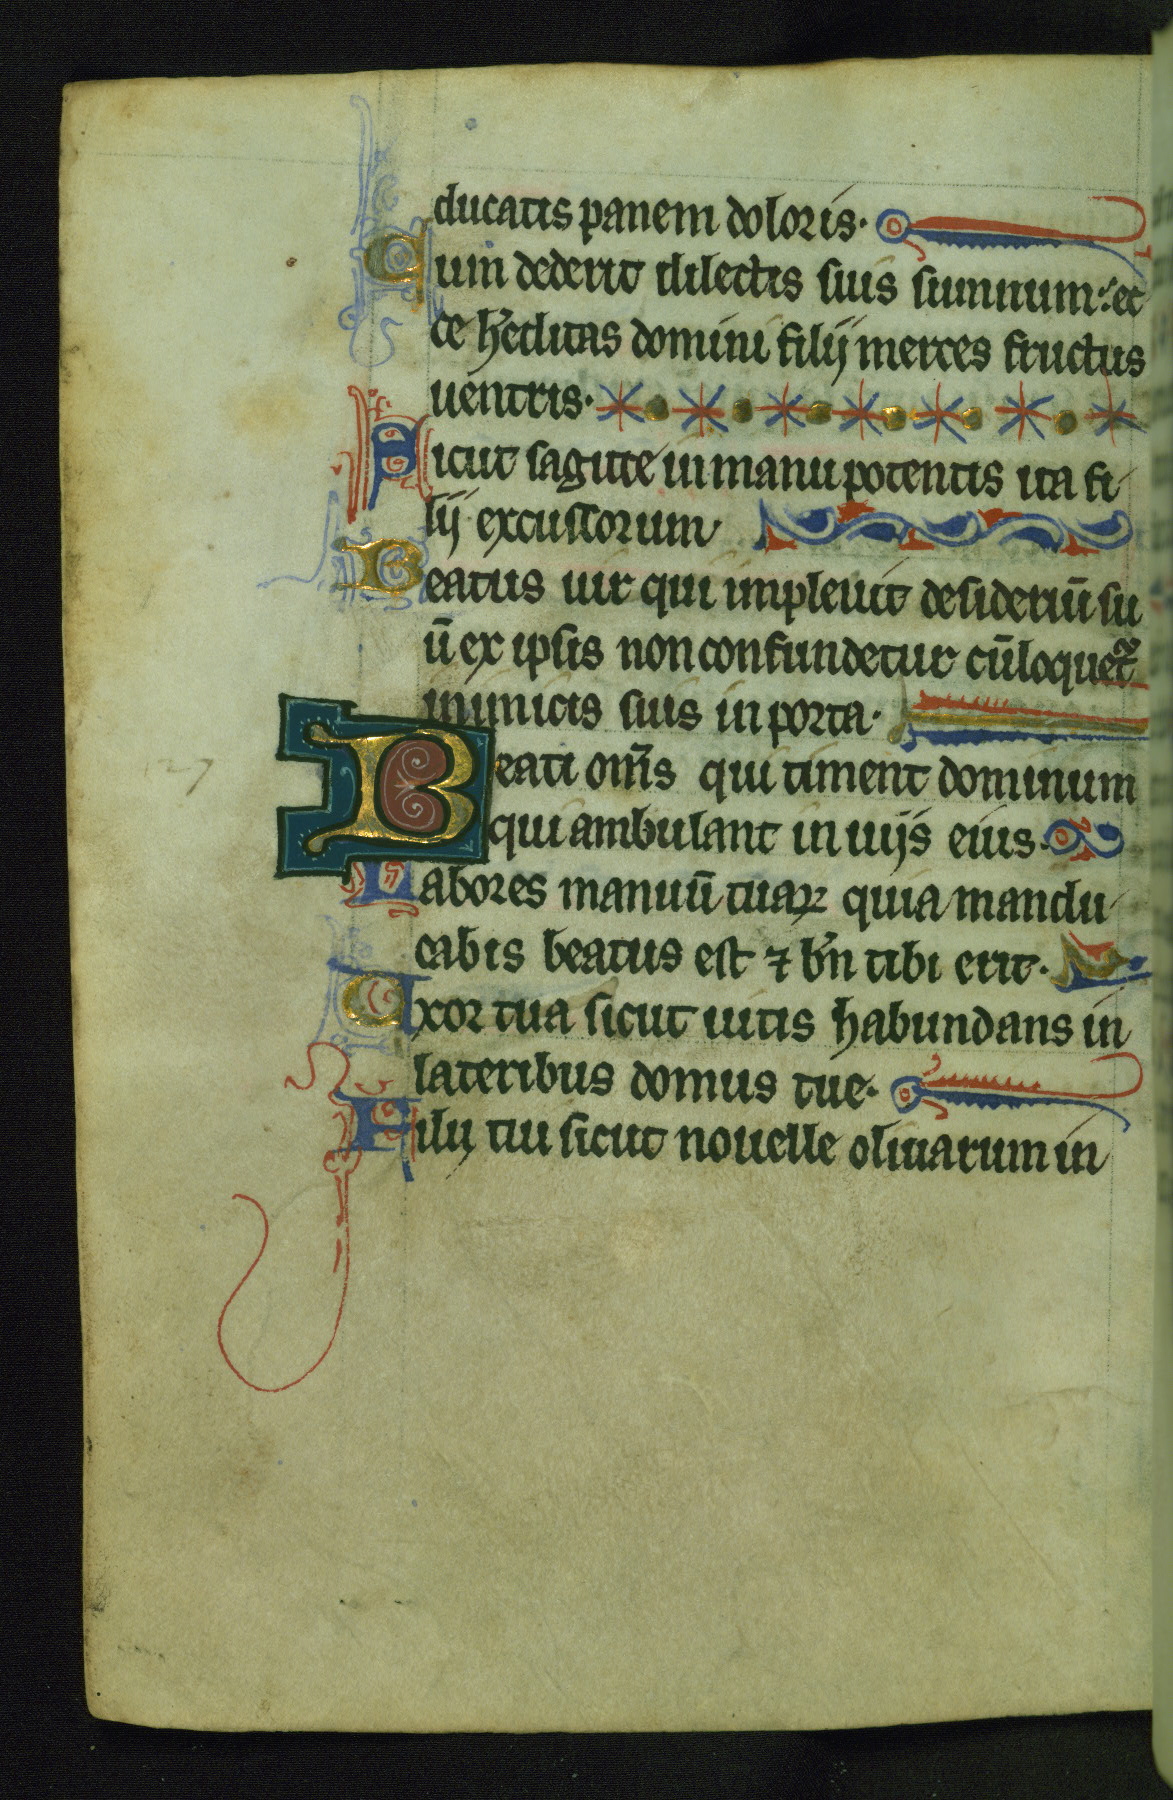 ducatis panem doloris·
Cum dederit dilectis suis sumnum: ec
ce h̓editas domini filij merces fructus
uentris·
Sicut sagitte in manu potentis ita fi
lij excussorum
Beatus uir qui impleuit desideriū su
ū ex ipsis non confundetur cū loquet᷑
inimicis suis in porta·
Beati om̄s qui timent dominum
qui ambulant in uijs eius·
Labores manuū tuaꝝ quia mandu
cabis beatus est ⁊ bn̄ tibi erit·
Uxor tua sicut uitis habundans in
lateribus domus tue·
Filij tui sicut nouelle oliuarum in
127